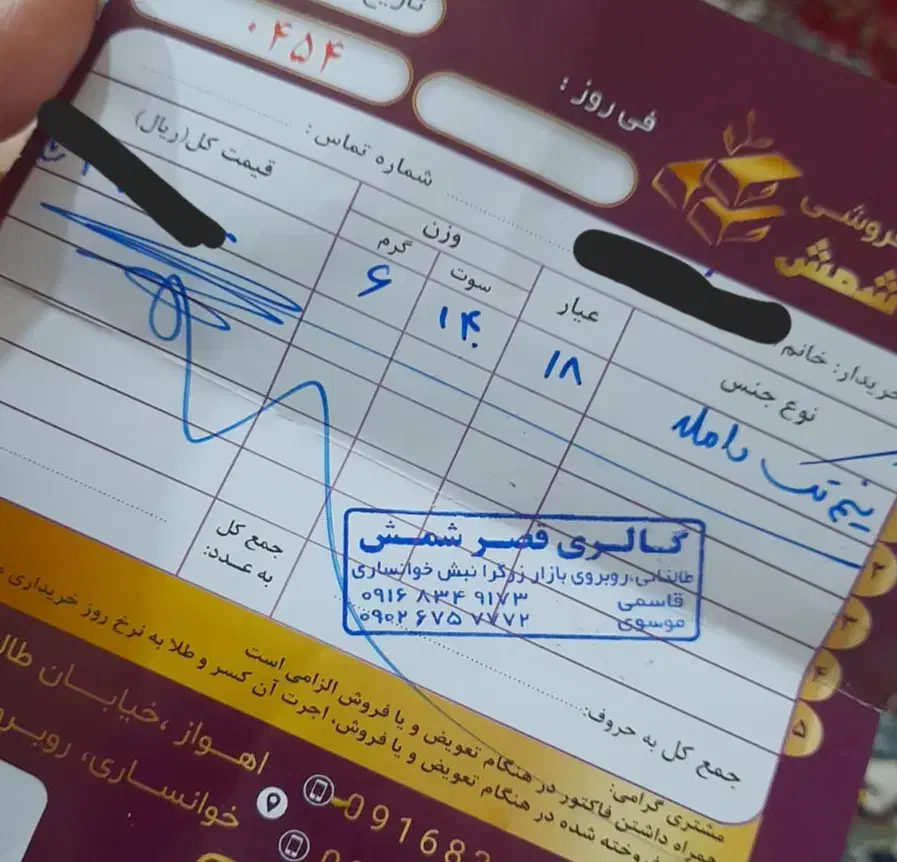 تاریخ
۰۴۵۴
فی روز :
شمش
شماره تماس :
خریدار: خانم
نوع جنس
عیار
وزن
سوت
گرم
قیمت کل(ریال)
نیم تک
۱۸
۱۴
۶
۲
۳
۴
۵
گالری قصر شمش
طالقانی،روبروی بازار زرگرا نبش خوانساری
قاسمی ۰۹۱۶ ۸۳۴ ۹۱۷۳
موسوی ۰۹۰۲ ۶۷۵ ۷۷۷۲
جمع کل
به عدد:
جمع کل به حروف:
مشتری گرامی:
همراه داشتن فاکتور در هنگام تعویض و یا فروش الزامی است
فروخته شده در هنگام تعویض و یا فروش، اجرت آن کسر و طلا به نرخ روز خریداری
اهواز ،خیابان
خوانساری،
09168